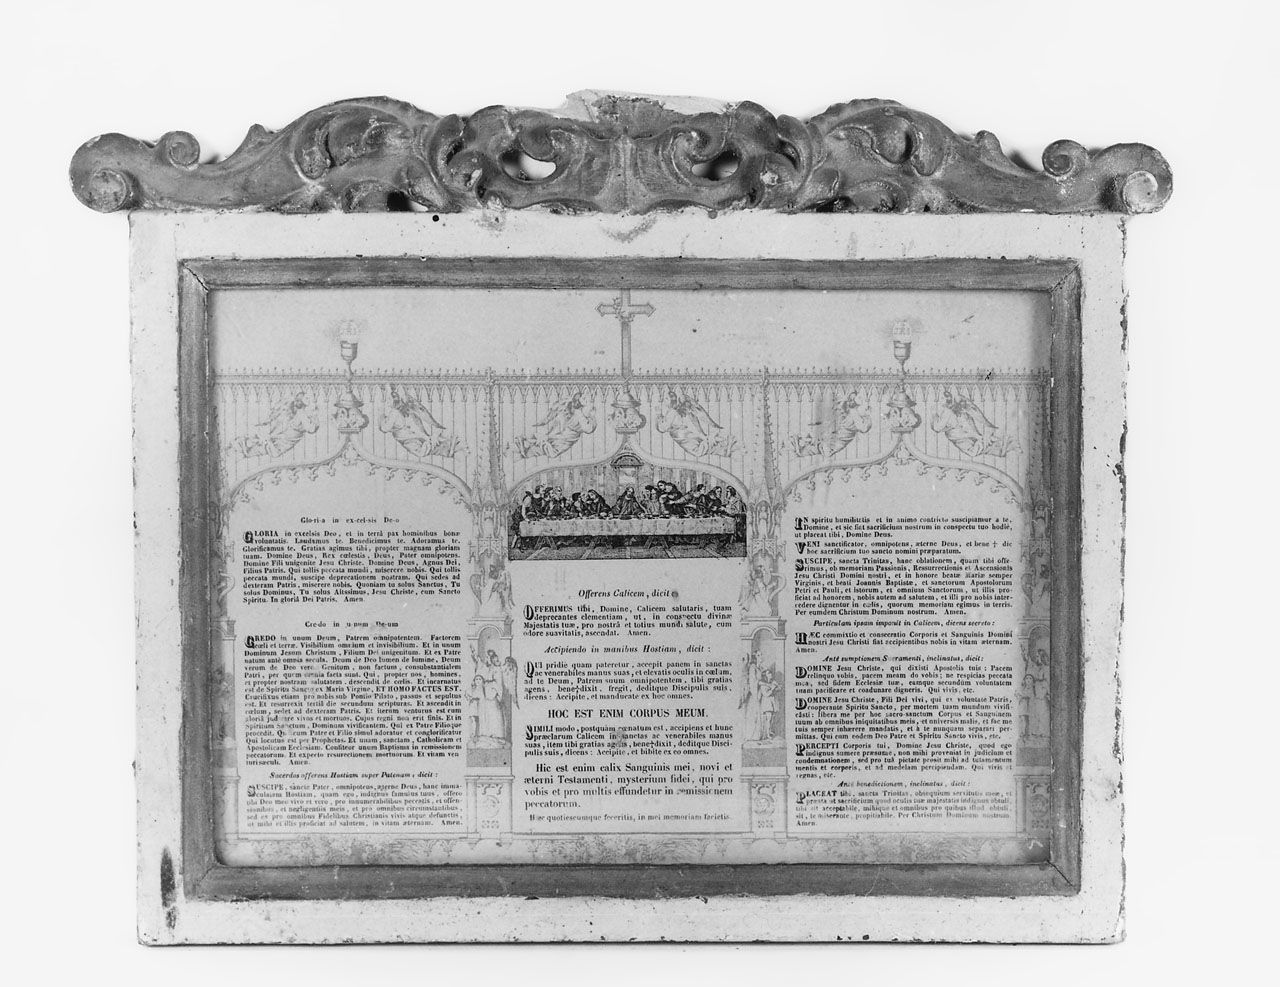 Glo-ri-a in ex-cel-sis De-o
GLORIA in excelsis Deo, et in terrâ pax hominibus bonæ
voluntatis. Laudamus te. Benedicimus te. Adoramus te.
Glorificamus te. Gratias agimus tibi, propter magnam gloriam
tuam. Domine Deus, Rex cœlestis, Deus, Pater omnipotens.
Domine Fili unigenite Jesu Christe. Domine Deus, Agnus Dei,
Filius Patris. Qui tollis peccata mundi, miserere nobis. Qui tollis
peccata mundi, suscipe deprecationem nostram. Qui sedes ad
dexteram Patris, miserere nobis. Quoniam tu solus Sanctus, Tu
solus Dominus, Tu solus Altissimus, Jesu Christe, cum Sancto
Spiritu. In gloriâ Dei Patris. Amen.
Cre-do in u-num De-um
CREDO in unum Deum, Patrem omnipotentem. Factorem
cœli et terræ. Visibilium omnium et invisibilium. Et in unum
Dominum Jesum Christum, Filium Dei unigenitum. Et ex Patre
natum ante omnia secula. Deum de Deo lumen de lumine, Deum
verum de Deo vero. Genitum, non factum, consubstantialem
Patri, per quem omnia facta sunt. Qui, propter nos, homines,
et propter nostram salutatem, descendit de cœlis. Et incarnatus
est de Spiritu Sancto ex Mariâ Virgine, ET HOMO FACTUS EST.
Crucifixus etiam pro nobis sub Pontio Pilato, passus et sepultus
est. Et resurrexit tertiâ die secundum scripturas. Et ascendit in
cœlum, sedet ad dexteram Patris. Et iterum venturus est cum
gloriâ judicare vivos et mortuos. Cujus regni non erit finis. Et in
Spiritum Sanctum, Dominum vivificantem. Qui ex Patre Filioque
procedit. Qui cum Patre et Filio simul adoratur et conglorificatur
Qui locutus est per Prophetas. Et unam, sanctam, Catholicam et
Apostolicam Ecclesiam. Confiteor unum Baptisma in remissionem
peccatorum. Et expecto resurectionem mortuorum. Et vitam ven
turi sæculi. Amen.
Sacerdos offerens Hostiam super Patenam, dicit :
SUSCIPE, sancte Pater, omnipotens, æterne Deus, hanc imma-
culatam Hostiam, quam ego, indignus famulus tuus, offero
tibi Deo meo vivo et vero, pro innumerabilibus peccatis, et offen-
sionibus, et negligentiis meis, et pro omnibus circumstantibus,
sed et pro omnibus Fidelibus Christianis vivis atque defunctis,
ut mihi et illis proficiat ad salutem, in vitam æternam. Amen.
Offerens Calicem, dicit
OFFERIMUS tibi, Domine, Calicem salutaris, tuam
deprecantes clementiam, ut, in conspectu divinæ
Majestatis tuæ, pro nostrâ et totius mundi salute, cum
odore suavitatis, ascendat. Amen.
Accipiendo in manibus Hostiam, dicit :
QUI pridie quam pateretur, accepit panem in sanctas
ac venerabiles manus suas, et elevatis oculis in cœlum,
ad te Deum, Patrem suum omnipotentem, tibi gratias
agens, bene†dixit, fregit, deditque Discipulis suis,
dicens : Accipite, et manducate ex hoc omnes.
HOC EST ENIM CORPUS MEUM.
SIMILI modo, postquam cœnatum est, accipiens et hunc
præclarum Calicem in sanctas ac venerabiles manus
suas, item tibi gratias agens, bene†dixit, deditque Disci-
pulis suis, dicens : Accipite, et bibite ex eo omnes.
Hic est enim calix Sanguinis mei, novi et
æterni Testamenti, mysterium fidei, qui pro
vobis et pro multis effundetur in remissionem
peccatorum.
Hæc quotiescumque feceritis, in mei memoriam facietis.
IN spiritu humilitatis et in animo contrito suscipiamur a te,
Domine, et sic fiat sacrificium nostrum in conspectu tuo hodie,
ut placeat tibi, Domine Deus.
VENI sanctificator, omnipotens, æterne Deus, et bene † dic
hoc sacrificium tuo sancto nomini præparatum.
SUSCIPE, sancta Trinitas, hanc oblationem, quam tibi offe-
rimus, ob memoriam Passionis, Ressurrectionis et Ascensionis
Jesu Christi Domini nostri, et in honore beatæ Mariæ semper
Virginis, et beati Joannis Baptistæ, et sanctorum Apostolorum
Petri et Pauli, et istorum, et omnium Sanctorum, ut illis pro-
ficiat ad honorem, nobis autem ad salutem, et illi pro nobis inter-
cedere dignentur in cœlis, quorum memoriam egimus in terris.
Per eumdem Christum Dominum nostrum. Amen.
Particulam ipsam imponit in Calicem, dicens secreto :
HÆC commixtio et consecratio Corporis et Sanguinis Domini
nostri Jesu Christi fiat accipientibus nobis in vitam æternam.
Amen.
Antè sumptionem Sacramenti, inclinatus, dicit:
DOMINE Jesu Christe, qui dixisti Apostolis tuis : Pacem
relinquo vobis, pacem meam do vobis; ne respicias peccata
mea, sed fidem Ecclesiæ tuæ, eamque secundum voluntatem
tuam pacificare et coadunare digneris. Qui vivis, etc.
DOMINE Jesu Christe, Fili Dei vivi, qui ex voluntate Patris,
cooperante Spiritu Sancto, per mortem tuam mundum vivifi-
câsti : libera me per hoc sacro-sanctum Corpus et Sanguinem
tuum ab omnibus iniquitatibus meis, et universis malis, et fac me
tuis semper inhærere mandatis, et à te nunquam separari per-
mittas. Qui cum eodem Deo Patre et Spiritu Sancto vivis, etc.
PERCEPTI Corporis tui, Domine Jesu Christe, quod ego
indignus sumere præsumo, non mihi proveniat in judicium et
condemnationem, sed pro tuâ pietate prosit mihi ad tutamentum
mentis et corporis, et ad medelam percipiendam. Qui vivis et
regnas, etc.
Ante benedictionem, inclinatus, dicit:
PLACEAT tibi, sancta Trinitas, obsequium servitutis meæ, et
præsta ut sacrificium quod oculis tuæ majestatis indignus obtuli,
tibi sit acceptabile, mihique et omnibus pro quibus illud obtuli,
sit, te miserante, propitiabile. Per Christum Dominum nostrum.
Amen.